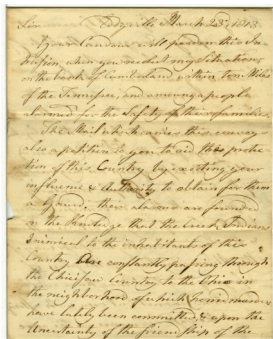 Sir Eddyville March 23d, 1813
Your Candour will pardon this In-
trusion when you reflect my Situation,
on the bank of Cumberland within ten Miles
of the Tennessee, and among a people
alarmed for the Safety of their families.
The Mail which carries this, conveys
also a petition to you to aid the protec-
tion of this Country by exerting your
influence & Authority to obtain for them
a Guard; their alarms are founded
on the Knowledge that the Creek Indians
Inimical to the inhabitants of this
Country are constantly passing through
the Chickasaw country to the Ohio in
the neighborhood of which some murders
have lately been committed & upon the
Uncertainty of the friendship of the